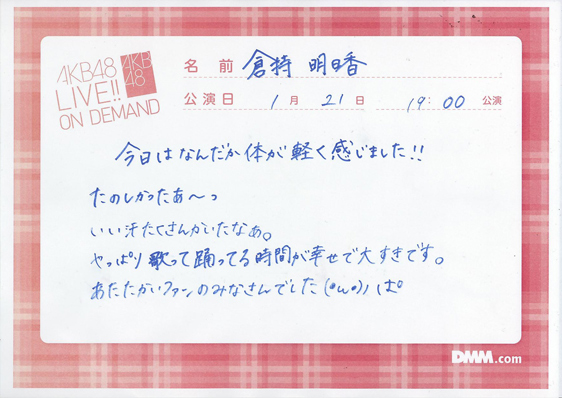 AKB48
LIVE!!
ON DEMAND
AKB
48
名前 倉持 明日香
公演日 1月 21日 19:00 公演
今日はなんだか体が軽く感じました!!
たのしかったあ〜っ
いい汗たくさんかいたなぁ。
やっぱり歌って踊ってる時間が幸せで大すきです。
あたたかいファンのみなさんでした(•ω•)ノぱ
DMM.com